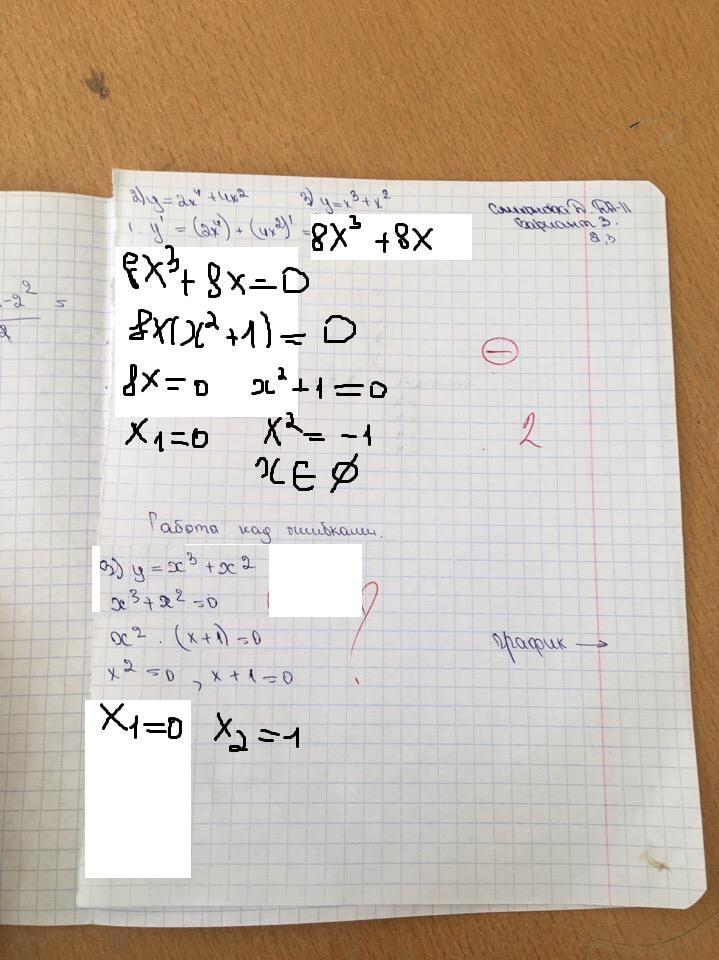 2) y=2x⁴+4x² 3) y=x³+x²
1. y' = (2x⁴) + (4x²)' = 8x³ + 8x
Вариант 3.
8x³ + 8x = 0
-2²
2
=
8x(x² + 1) = 0
8x = 0 x² + 1 = 0
x₁ = 0 x² = -1
2
x ∈ ∅
Работа над ошибками.
3) y = x³ + x²
x³ + x² = 0
x² · (x+1) = 0
?
график →
x² = 0 , x + 1 = 0
x₁ = 0 x₂ = -1